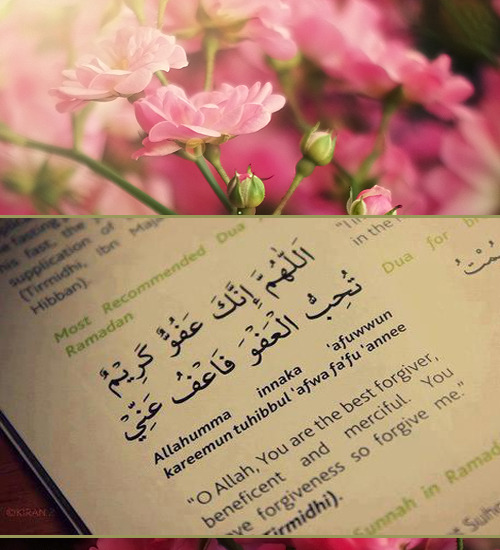 the fasting
his fast, the
supplication of
(Tirmidhi, Ibn Maj
Hibban).
Most Recommended Dua
Ramadan
اَللّٰهُمَّ إِنَّكَ عَفُوٌّ كَرِيْمٌ
تُحِبُّ الْعَفْوَ فَاعْفُ عَنِّيْ
Allahumma innaka 'afuwwun
kareemun tuhibbul 'afwa fa'fu 'annee
"O Allah, You are the best forgiver,
beneficent and merciful. You
ve forgiveness so forgive me."
irmidhi).
in the
Dua for b
Sunnah in Ramad
Suho
©KIRAN